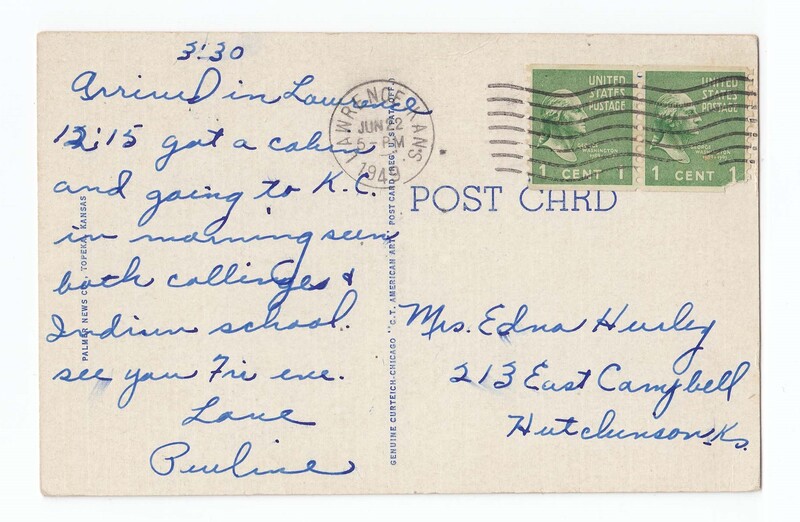 3:30
Arrived in Lawrence
12:15 got a cabin
and going to K.C.
in morning seen
both collinges &
Indian school.
see you Fri eve.
Love
Pauline
PALMER NEWS CO., TOPEKA, KANSAS
GENUINE CURTEICH-CHICAGO "C.T. AMERICAN ART" POST CARD (REG. U.S. PAT. OFF.)
LAWRENCE, KANS.
JUN 2
5-PM
1949
UNITED
STATES
POSTAGE
GEORGE
WASHINGTON
1 CENT 1
UNITED
STATES
POSTAGE
GEORGE
WASHINGTON
1 CENT 1
POST CARD
Mrs. Edna Hurley
213 East Campbell
Hutchinson Ks.